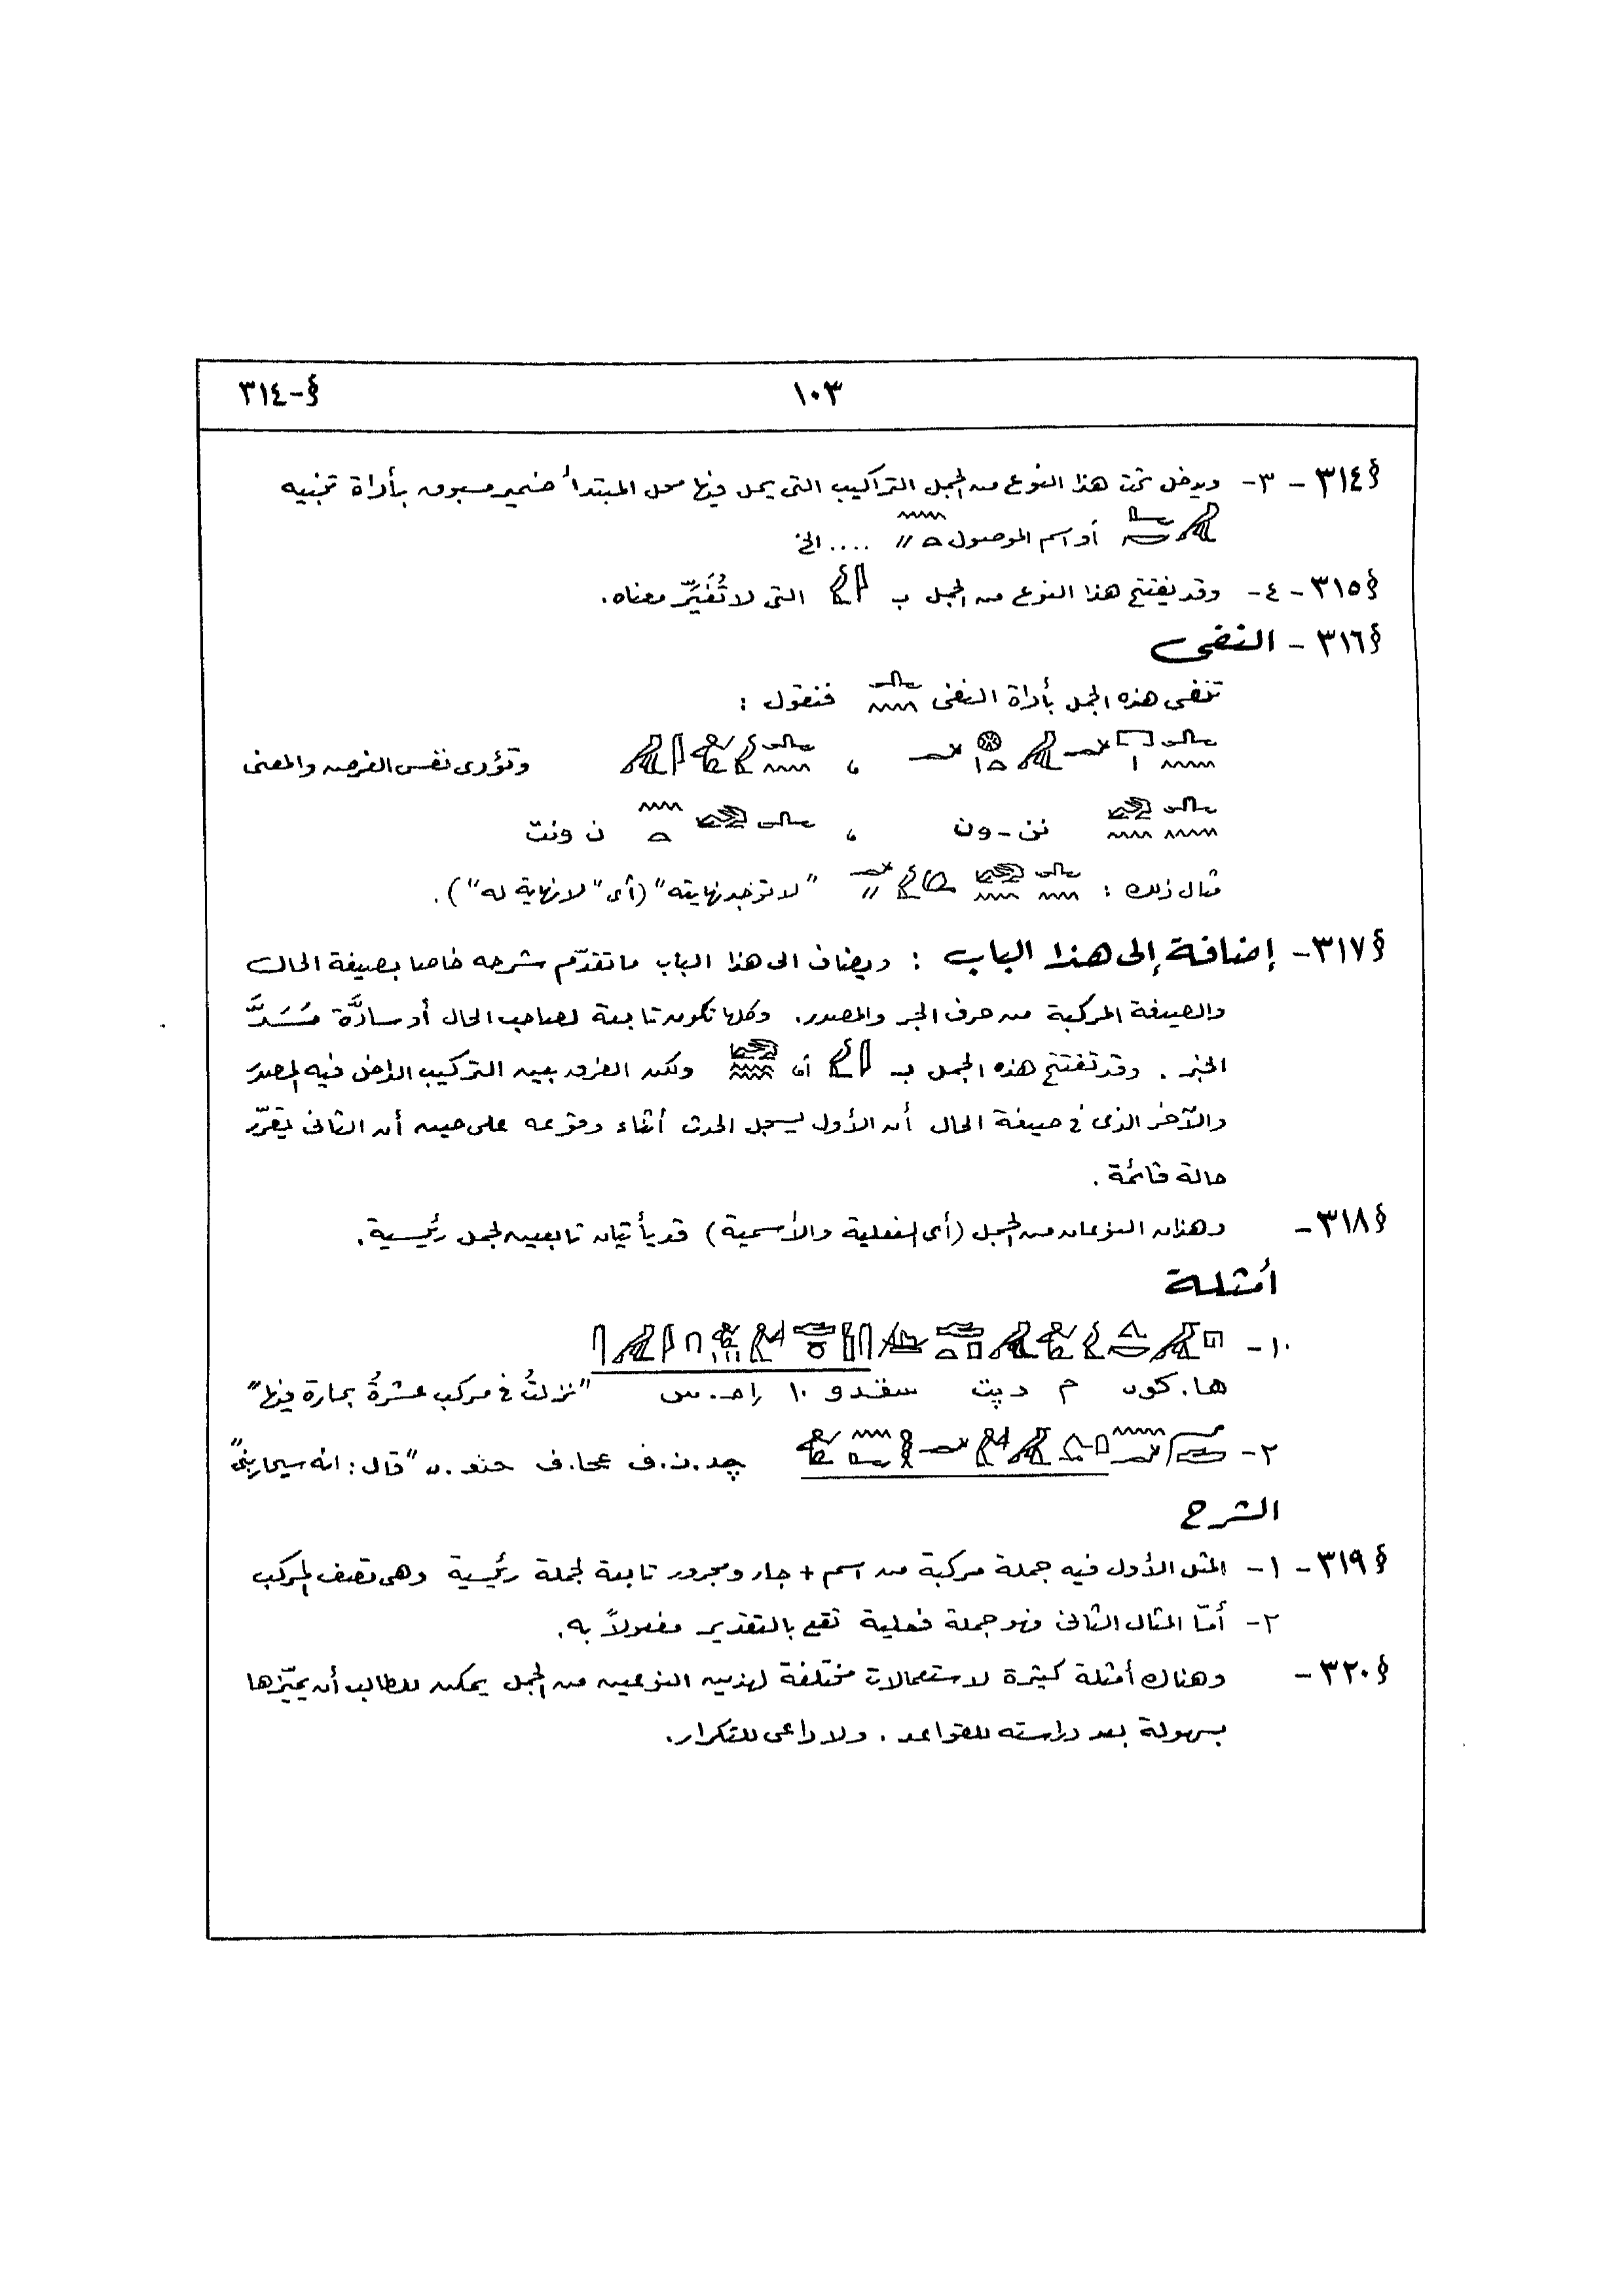 §-٣١٤
١٠٣
§٣١٤ - ٣- ويدخل تحت هذا النوع من الجمل التراكيب التى يحل فيها محل المبتدأ ضمير مسبوق بأداة تنبيه
أو اسم الموصول .... الخ
§٣١٥ - ٤- وقد يفتتح هذا النوع من الجمل ب التى لا تُغَيِّر معناه.
§٣١٦ - النفى
تنفى هذه الجمل بأداة النفى فنقول :
، وتؤدى نفس الغرض والمعنى
نن - ون ، ن ونت
مثال ذلك : "لا توجد نهايته" (أى "لا نهاية له").
§٣١٧- إضافة إلى هذا الباب : ويضاف الى هذا الباب ما تقدّم شرحه خاصا بصيغة الحال
والصيغة المركبة من حرف الجر والمصدر. وكلها تكون تابعة لصاحب الحال أو سادَّة مَسَدَّ
الخبر . وقد تفتتح هذه الجمل بـ أو ولكن الفرق بين التركيب الداخل فيه المصدر
والآخر الذى فى صيغة الحال أن الأول يسجل الحدث أثناء وقوعه على حين أن الثانى يقرّر
حالة قائمة .
§٣١٨- وهذان النوعان من الجمل (أى الفعلية والأسمية) قد يأتيان تابعين لجمل رئيسية.
أمثلة
١-
ها.كون م دپت سقدو ١٠ راحـ.س "نزلتُ فى مركب عشرةُ بحارة فيها"
٢- چد.ن.ف عحا.ف حنعـ.ى "قال: انه سيحاربنى"
الشرح
§٣١٩ - ١- المثل الأول فيه جملة مركبة من اسم + جار ومجرور تابعة لجملة رئيسية وهى تصف المركب
٢- أمّا المثال الثانى فهو جملة فعلية تقع بالتقدير مفعولاً به.
§٣٢٠- وهناك أمثلة كثيرة لاستعمالات مختلفة لهذين النوعين من الجمل يمكن للطالب أن يميّزها
بسهولة بعد دراسته للقواعد . ولا داعى للتكرار.